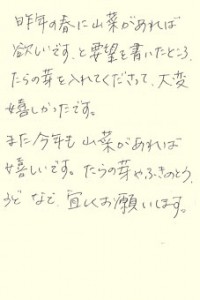 昨年の春に山菜があれば
欲しいです、と要望を書いたところ、
たらの芽を入れてくださって、大変
嬉しかったです。
また今年も山菜があれば
嬉しいです。たらの芽やふきのとう、
うど など、宜しくお願いします。